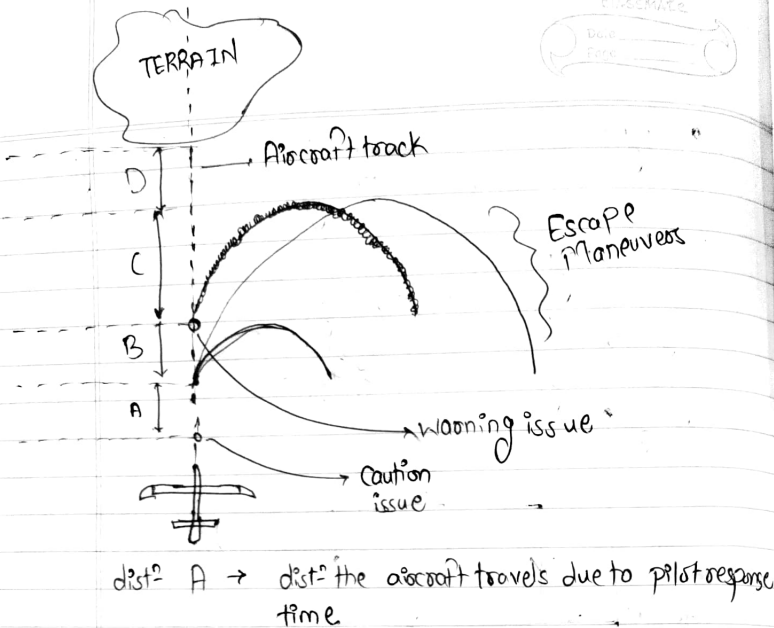 TERRAIN
Date
Page
D
Aircraft track
C
Escape
Maneuvers
B
A
Warning issue
Caution
issue
distⁿ A → distⁿ the aircraft travels due to pilot response
time